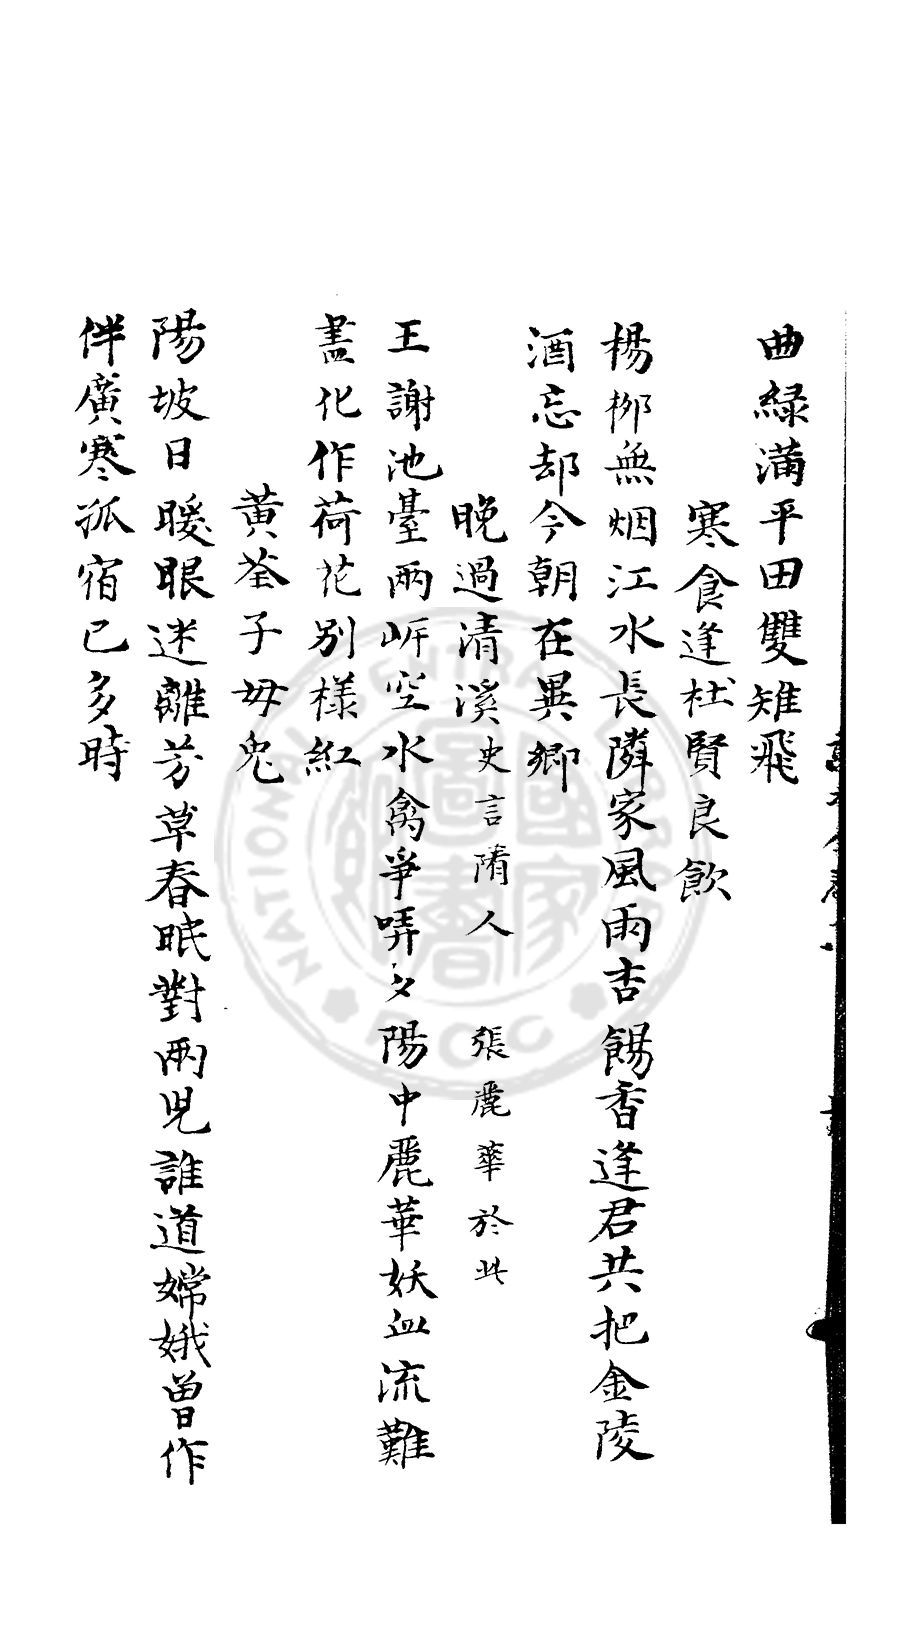 曲緑滿平田雙雉飛
寒食逢杜賢良飲
楊栁無烟江水長隣家風雨杏餳香逢君共把金陵
酒忘却今朝在異鄉
晚過清溪史言隋人 張麗華於此
王謝池臺兩岍空水禽爭哢夕陽中麗華妖血流難
盡化作荷花別樣紅
黄荃子母兔
陽坡日暖眼迷離芳草春眠對兩児誰道嫦娥曽作
伴廣寒孤宿已多時
NATIONAL CENTRAL LIBRARY
ROC
國家圖書館